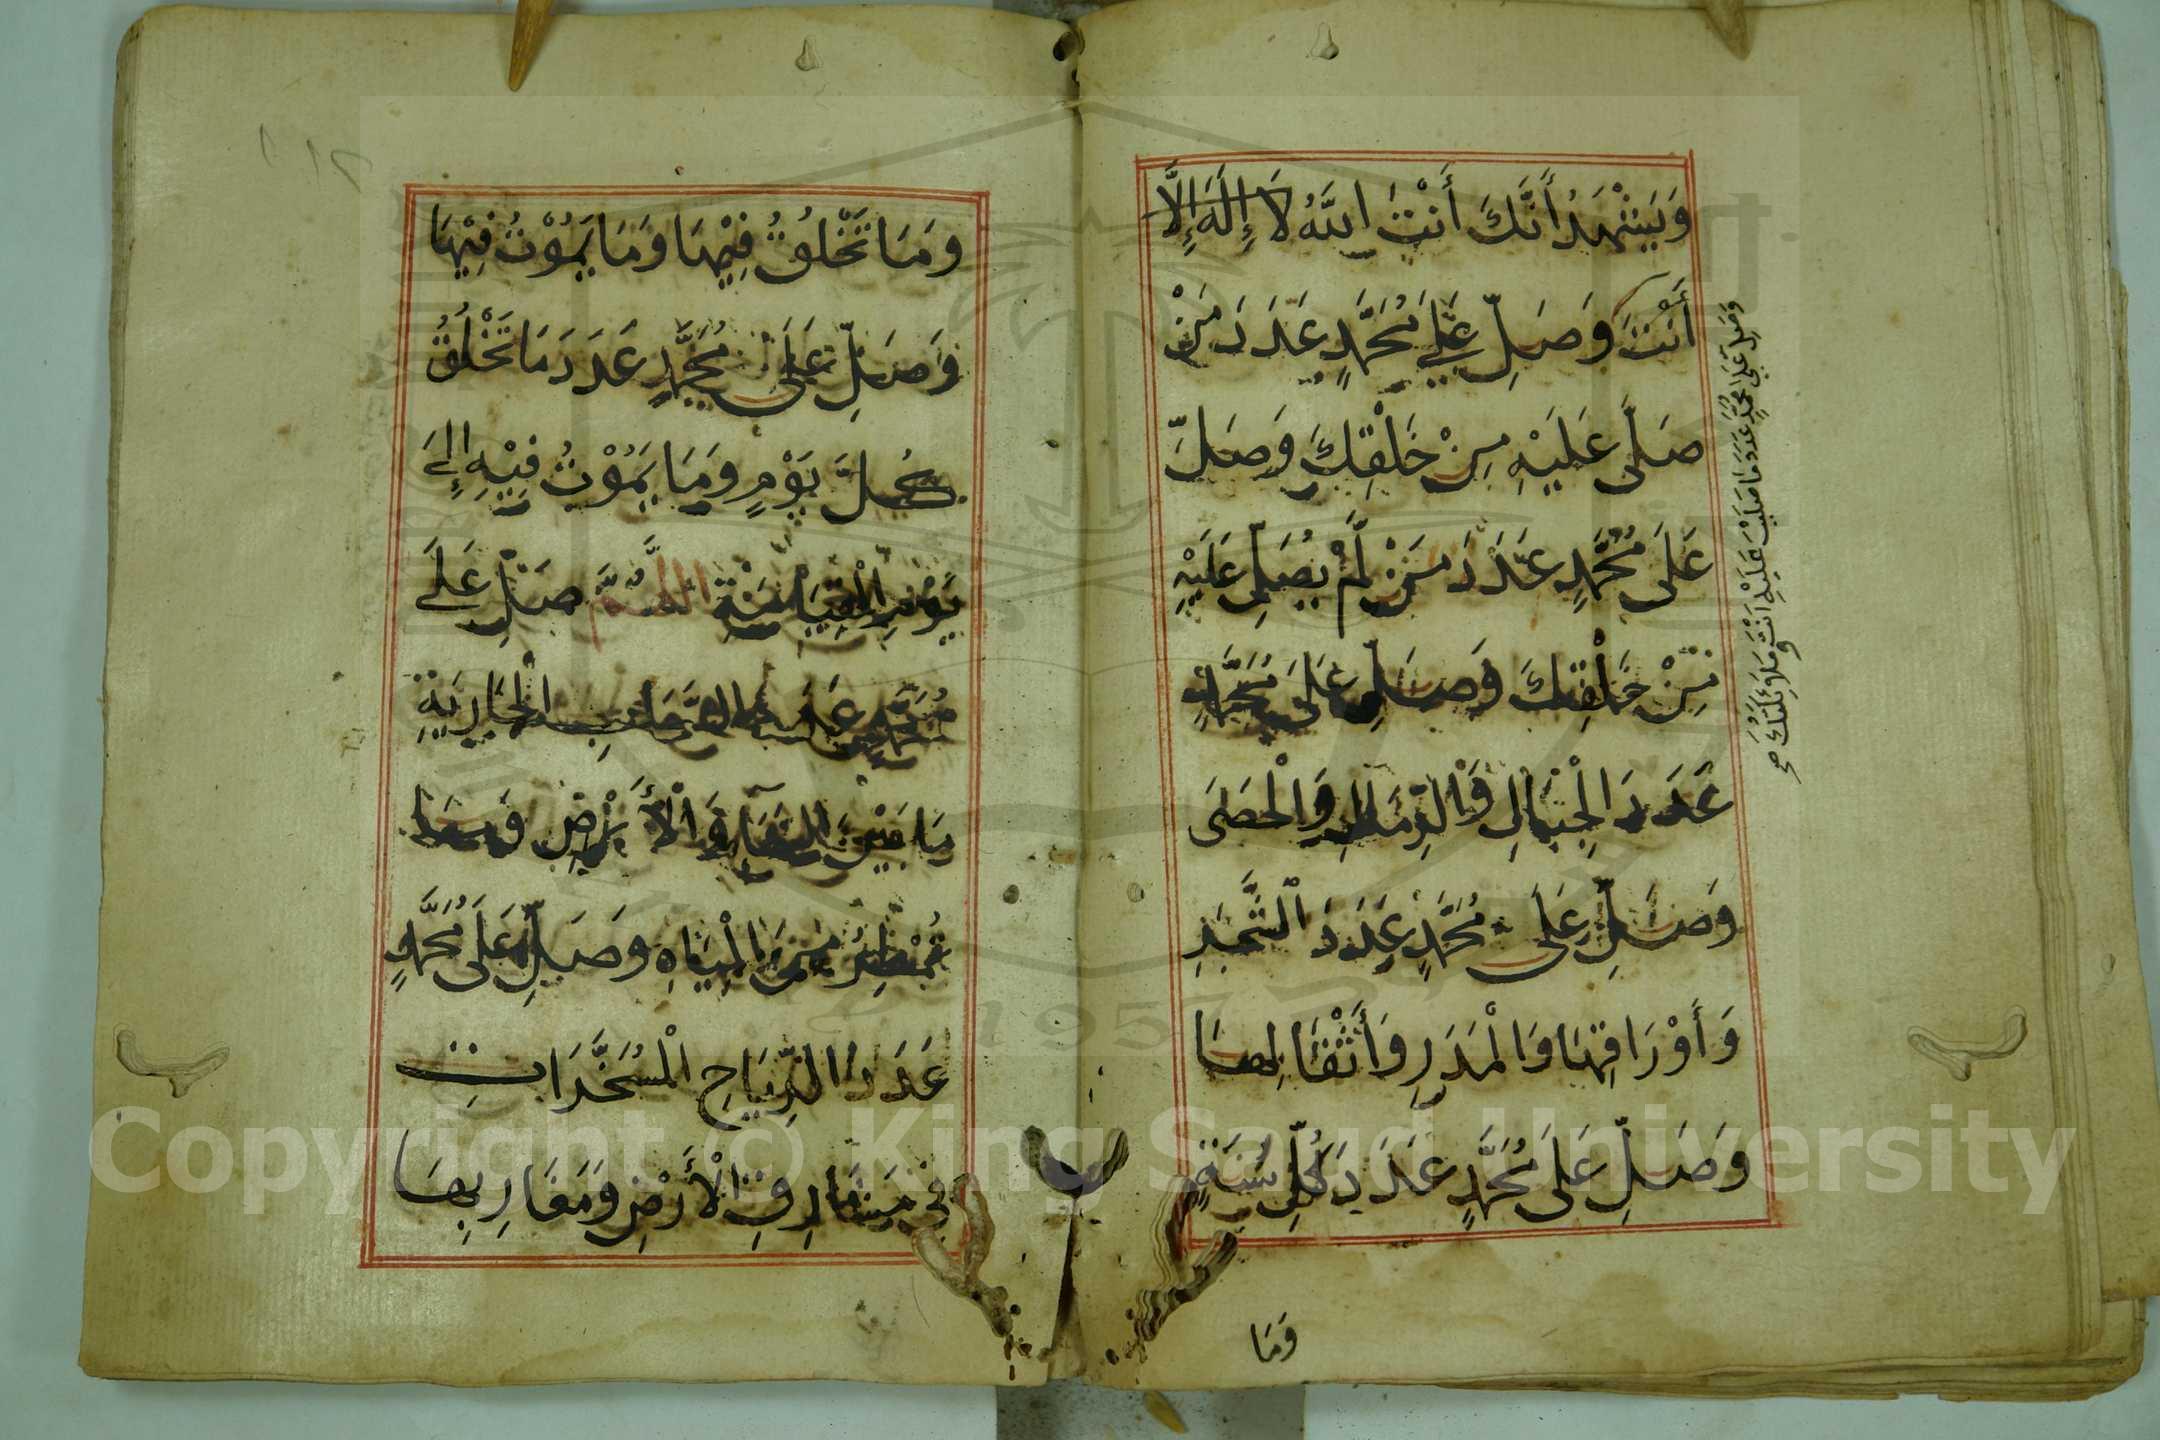 وَيَشْهَدُ أَنَّكَ أَنْتَ اللهُ لَا إِلَهَ إِلَّا
أَنْتَ وَصَلِّ عَلَى مُحَمَّدٍ عَدَدَ مَنْ
صَلَّى عَلَيْهِ مِنْ خَلْقِكَ وَصَلِّ
عَلَى مُحَمَّدٍ عَدَدَ مَنْ لَّمْ يُصَلِّ عَلَيْهِ
مِنْ خَلْقِكَ وَصَلِّ عَلَى مُحَمَّدٍ
عَدَدَ الْجِبَالِ وَالرِّمَالِ وَالْحَصَى
وَصَلِّ عَلَى مُحَمَّدٍ عَدَدَ الشَّجَرِ
وَأَوْرَاقِهَا وَالْمَدَرِ وَأَثْقَالِهَا
وَصَلِّ عَلَى مُحَمَّدٍ عَدَدَ كُلِّ سَنَةٍ
وَمَا
وَصَلِّ عَلَى مُحَمَّدٍ عَدَدَ مَا صَلَّيْتَ عَلَيْهِ أَنْتَ وَمَلَائِكَتُكَ صح
وَمَا تَخْلُقُ فِيْهَا وَمَا يَمُوْتُ فِيْهَا
وَصَلِّ عَلَى مُحَمَّدٍ عَدَدَ مَا تَخْلُقُ
كُلَّ يَوْمٍ وَمَا يَمُوْتُ فِيْهِ إِلَى
يَوْمِ الْقِيَامَةِ اللَّهُمَّ صَلِّ عَلَى
مُحَمَّدٍ عَدَدَ السَّحَابِ الْجَارِيَةِ
مَا بَيْنَ السَّمَاءِ وَالْأَرْضِ وَمَا
تُمْطِرُ مِنَ الْمِيَاهِ وَصَلِّ عَلَى مُحَمَّدٍ
عَدَدَ الرِّيَاحِ الْمُسَخَّرَاتِ
فِي مَشَارِقِ الْأَرْضِ وَمَغَارِبِهَا
Copyright © King Saud University
1957